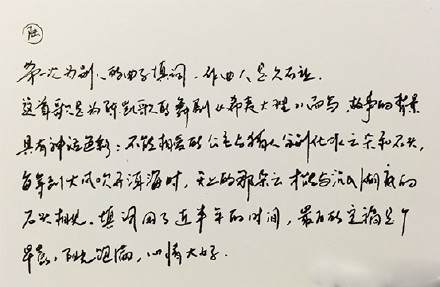 第一次为别人的曲子填词，作曲人是久石让。
这首歌是为陈凯歌的舞剧《希夷大理》而写，故事的背景
具有神话色彩：不能相爱的公主与猎人分别化成云朵和石头，
每年到大风吹开洱海时，天上的那朵云才能与沉入湖底的
石头相见。填词用了近半年的时间，最后的定稿是个
早晨，阳光饱满，心情大好。